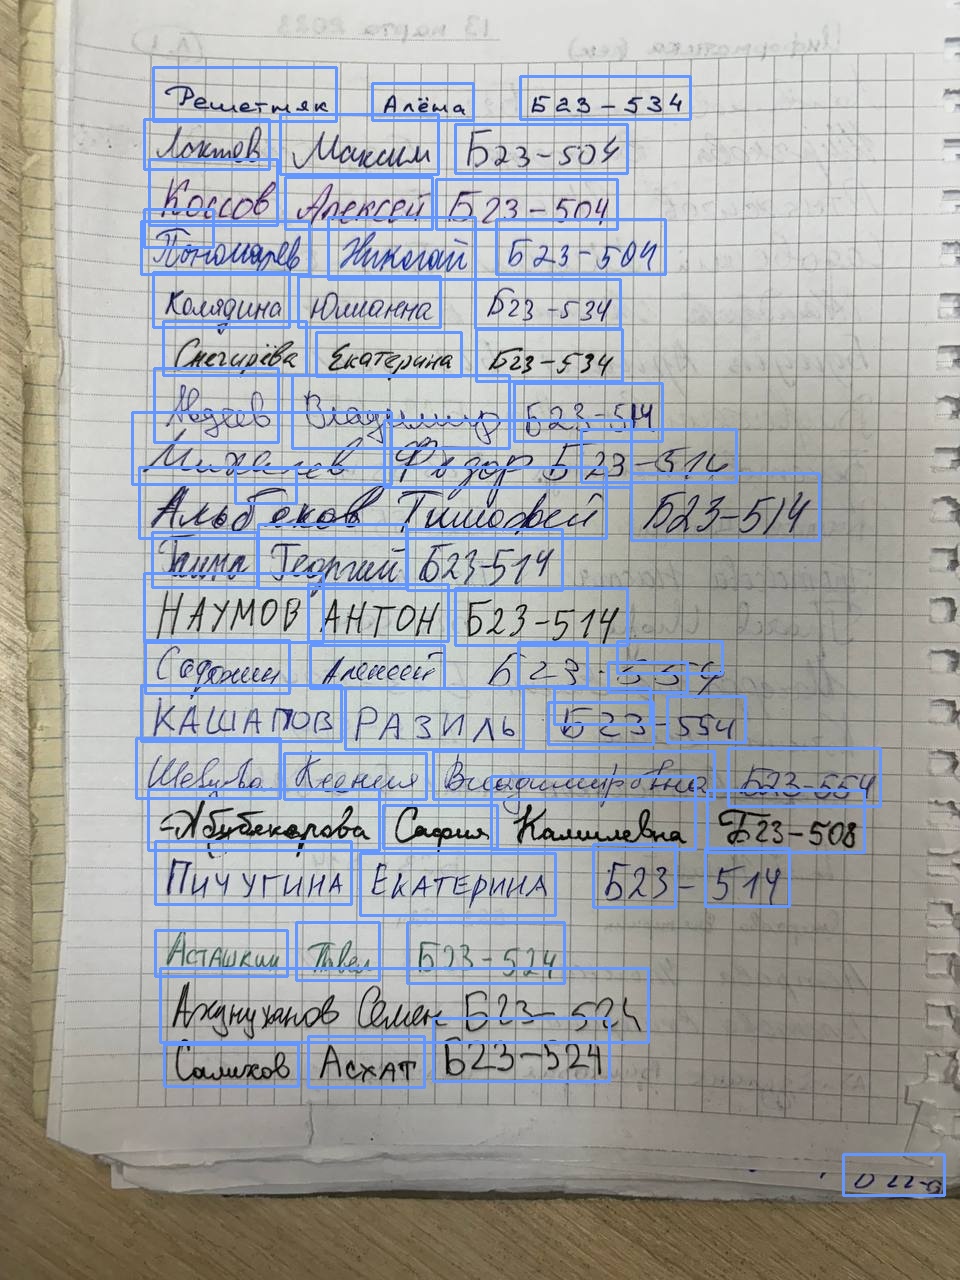 Решетняк Алёна Б23-534
Локтов Максим Б23-504
Коссов Алексей Б23-504
Пономарев Николай Б23-504
Колядина Юлианна Б23-534
Снегирёва Екатерина Б23-534
Авдеев Владимир Б23-514
Михалев Б23-514
Альбеков Тимофей Б23-514
Георгий Б23-514
НАУМОВ АНТОН Б23-514
Алексей Б23-554
КАШАПОВ РАЗИЛЬ Б23-554
Шевцова Ксения Владимировна Б23-554
Абубекерова София Камилевна Б23-508
ПИЧУГИНА ЕКАТЕРИНА Б23-514
АСТАШКИН Павел Б23-524
Ахунуханов Семен Б23-524
Салихов Асхат Б23-524